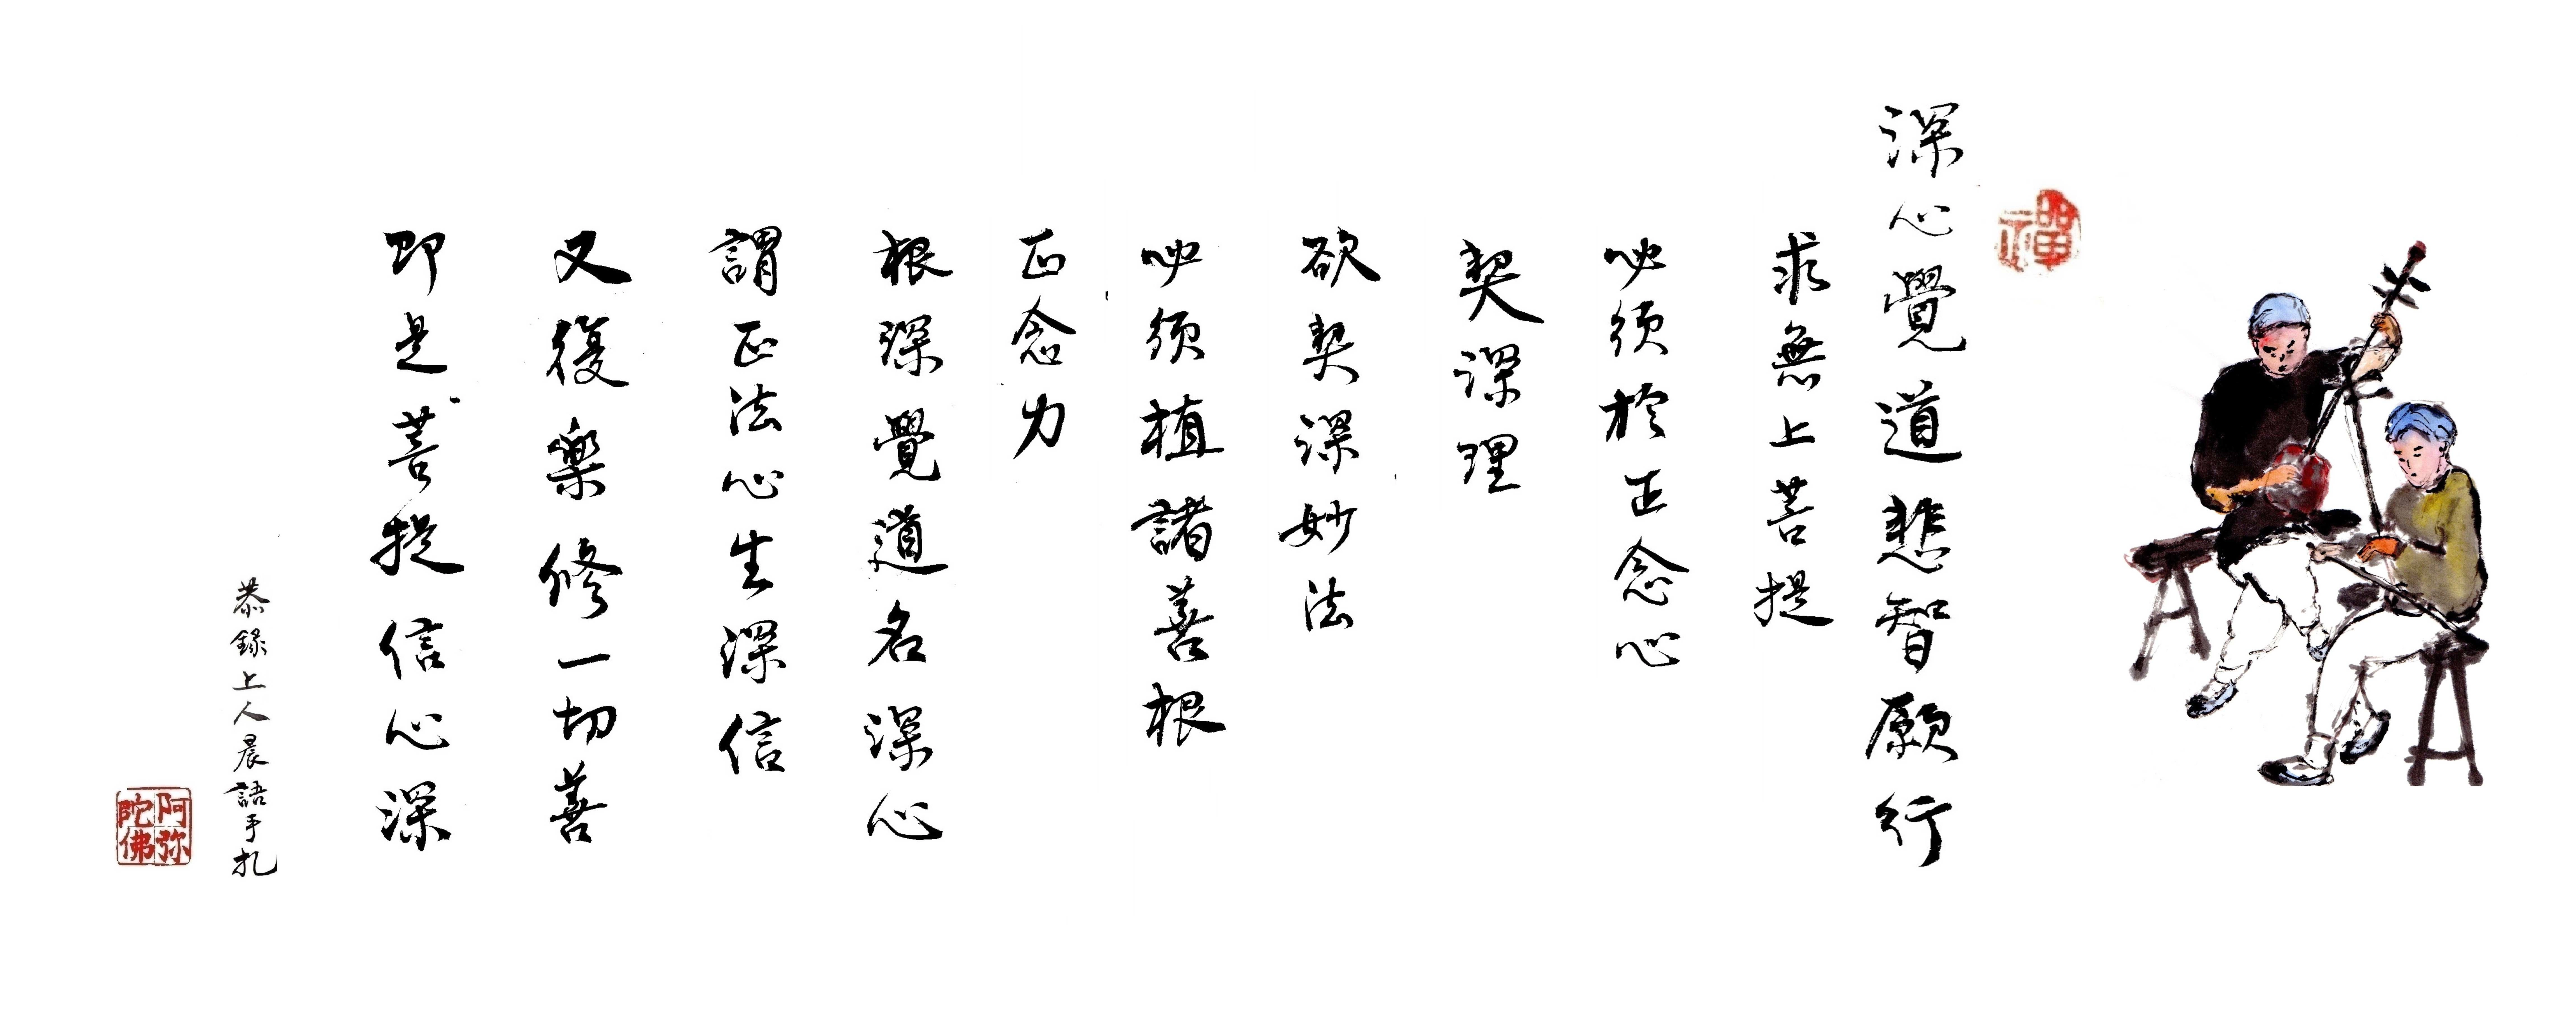 禪
深心覺道悲智願行
求無上菩提
必須於正念心
契深理
欲契深妙法
必須植諸善根
正念力
根深覺道名深心
謂正法心生深信
又復樂修一切善
即是菩提信心深
恭錄上人晨語手札
阿弥陀佛